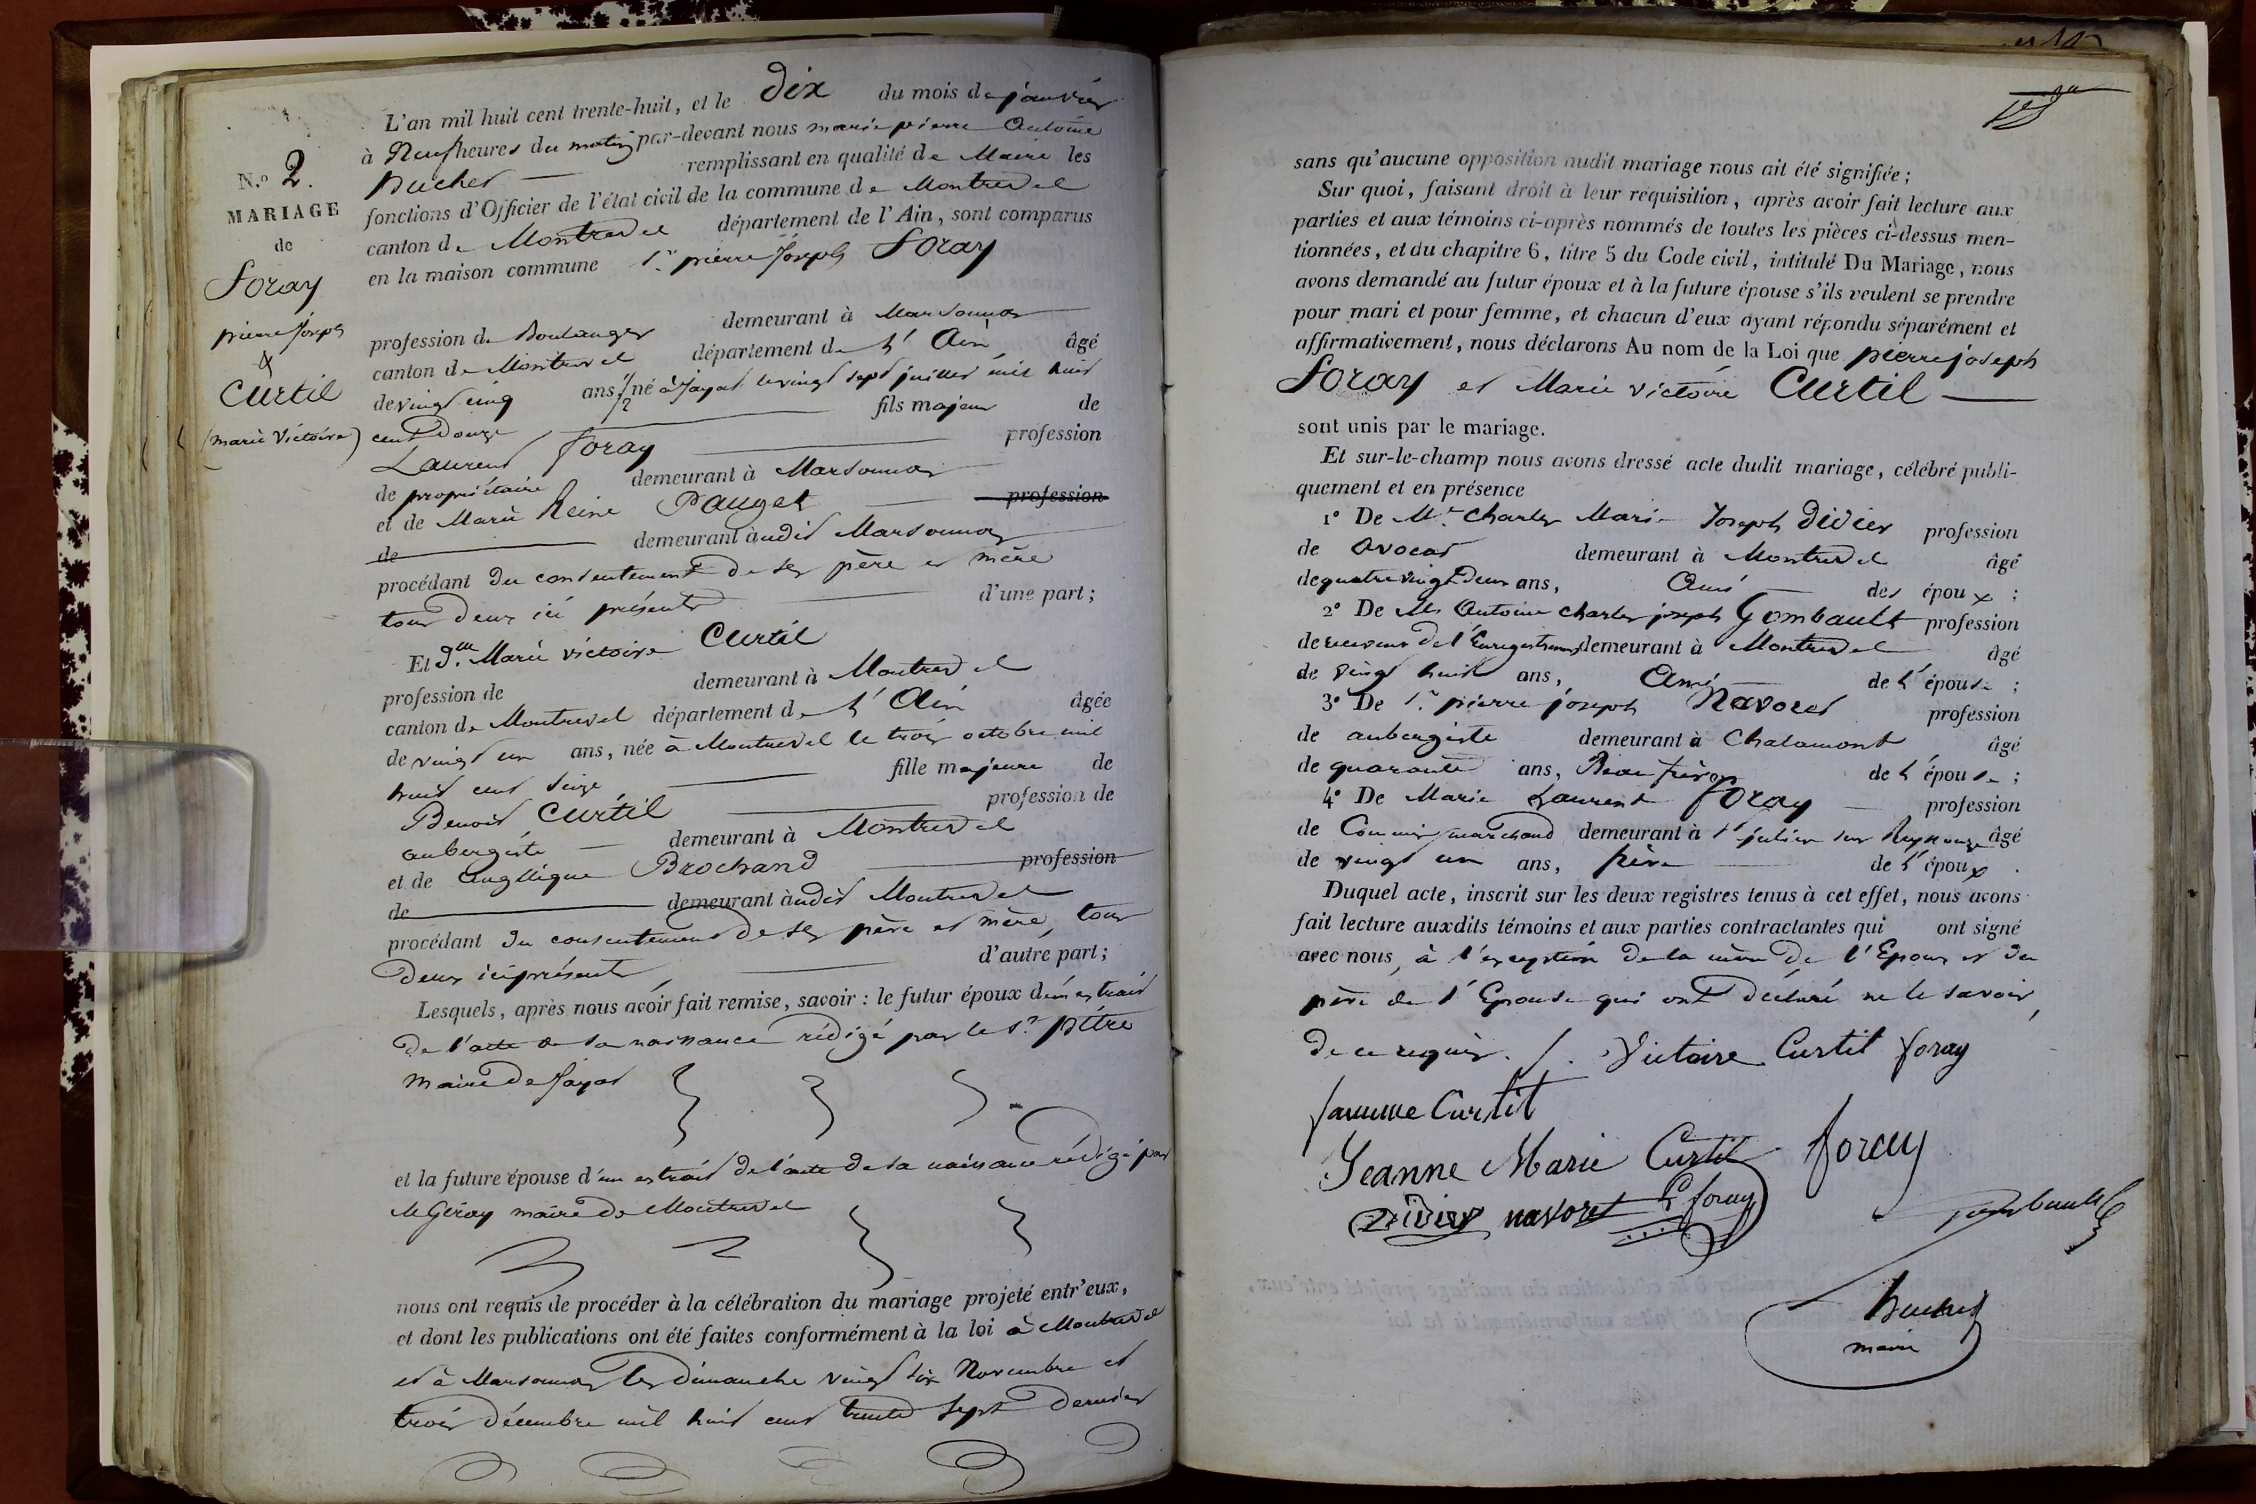 N.º 2.
MARIAGE
de
Foray
pierre Joseph
&
Curtil
(marie Victoire)
L'an mil huit cent trente-huit, et le Dix du mois de janvier
à Neuf heures du matin par-devant nous marie pierre Antoine
puchet remplissant en qualité de Maire les
fonctions d'Officier de l'état civil de la commune de Montrevel
canton de Montrevel département de l'Ain, sont comparus
en la maison commune Sr. pierre Joseph Foray
profession de Boulanger demeurant à Marsonnas
canton de Montrevel département de l'Ain âgé
de vingt cinq ans 1/2 né à Jayat le vingt sept juillet mil huit
cent Douze fils majeur de
Laurent Foray profession
de propriétaire demeurant à Marsonnas
et de Marie Reine Pauget profession
de demeurant audit Marsonnas
procédant du consentement de ses père et mère
tous deux ici présents d'une part;
Et Dlle. Marie victoire Curtil
profession de demeurant à Montrevel
canton de Montrevel département de l'Ain âgée
de vingt un ans, née à Montrevel le trois octobre mil
huit cent Seize fille majeure de
Benoit Curtil profession de
aubergiste demeurant à Montrevel
et de angélique Brochand profession
de demeurant audit Montrevel
procédant du consentement de ses père et mère, tous
deux ici présents, d'autre part;
Lesquels, après nous avoir fait remise, savoir: le futur époux d'un extrait
de l'acte de sa naissance rédigé par le Sr. pitre
maire de Jayat
et la future épouse d'un extrait de l'acte de sa naissance rédigé par
M Géray maire de Montrevel
nous ont requis de procéder à la célébration du mariage projeté entr'eux,
et dont les publications ont été faites conformément à la loi à Montrevel
et à Marsonnas les dimanche vingt six Novembre et
trois décembre mil huit cent trente sept dernier
sans qu'aucune opposition audit mariage nous ait été signifiée;
Sur quoi, faisant droit à leur réquisition, après avoir fait lecture aux
parties et aux témoins ci-après nommés de toutes les pièces ci-dessus men-
tionnées, et du chapitre 6, titre 5 du Code civil, intitulé Du Mariage, nous
avons demandé au futur époux et à la future épouse s'ils veulent se prendre
pour mari et pour femme, et chacun d'eux ayant répondu séparément et
affirmativement, nous déclarons Au nom de la Loi que pierre joseph
Foray et Marie victoire Curtil
sont unis par le mariage.
Et sur-le-champ nous avons dressé acte dudit mariage, célébré publi-
quement et en présence
1º De Mr. Charles Marie Joseph Didier profession
de avocat demeurant à Montrevel âgé
de quatre vingt Deux ans, Ami des époux;
2º De Mr Antoine Charles joseph Gombault profession
de receveur de l'Enregistrement demeurant à Montrevel âgé
de vingt huit ans, Ami de l'épouse;
3º De Sr. pierre joseph Navoret profession
de aubergiste demeurant à Chalamont âgé
de quarante ans, Beau frère de l'épouse;
4º De Marie Laurent Foray profession
de Commis marchand demeurant à St julien sur Reyssouze âgé
de vingt un ans, frère de l'époux.
Duquel acte, inscrit sur les deux registres tenus à cet effet, nous avons
fait lecture auxdits témoins et aux parties contractantes qui ont signé
avec nous, à l'exception de la mère de l'Epoux et du
père de l'Epouse qui ont déclaré ne le savoir,
de ce requis. Victoire Curtil foray
famme Curtit
Jeanne Marie Curtil foray
Didier navoret L foray
gombault
puchet
maire